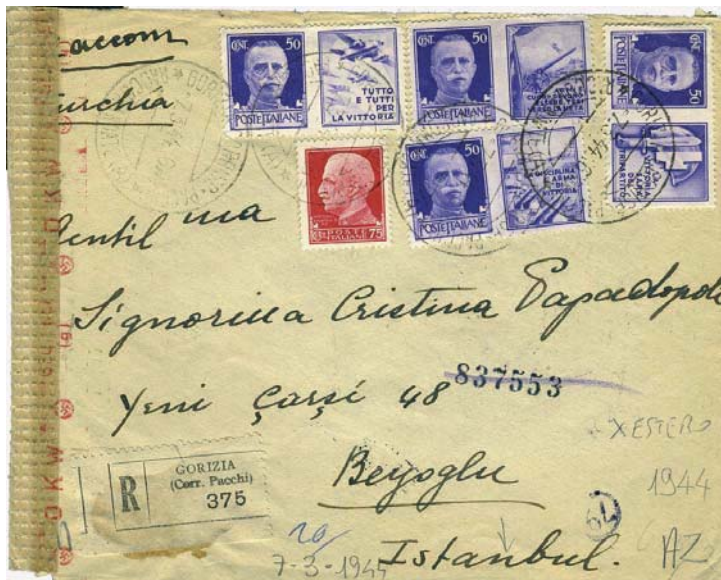 Raccom
Turchia
CENT. 50
POSTE ITALIANE
TUTTO
E TUTTI
PER
LA VITTORIA
CENT. 50
POSTE ITALIANE
CENT. 50
POSTE ITALIANE
LA
VITTORIA
SARÀ
DEL
TRIPARTITO
POSTE
ITALIANE 75
CENT. 50
POSTE ITALIANE
LA DISCIPLINA
ARMA
DI
VITTORIA
Gentil ma
Signorina Cristina Papadopol
Yeni Çarşi 48
837553
Beyoglu
Istanbul.
R
GORIZIA
(Corr. Pacchi)
375
OKW
OKW
OKW
X ESTERO
1944
AZ
20/
7-3-1944